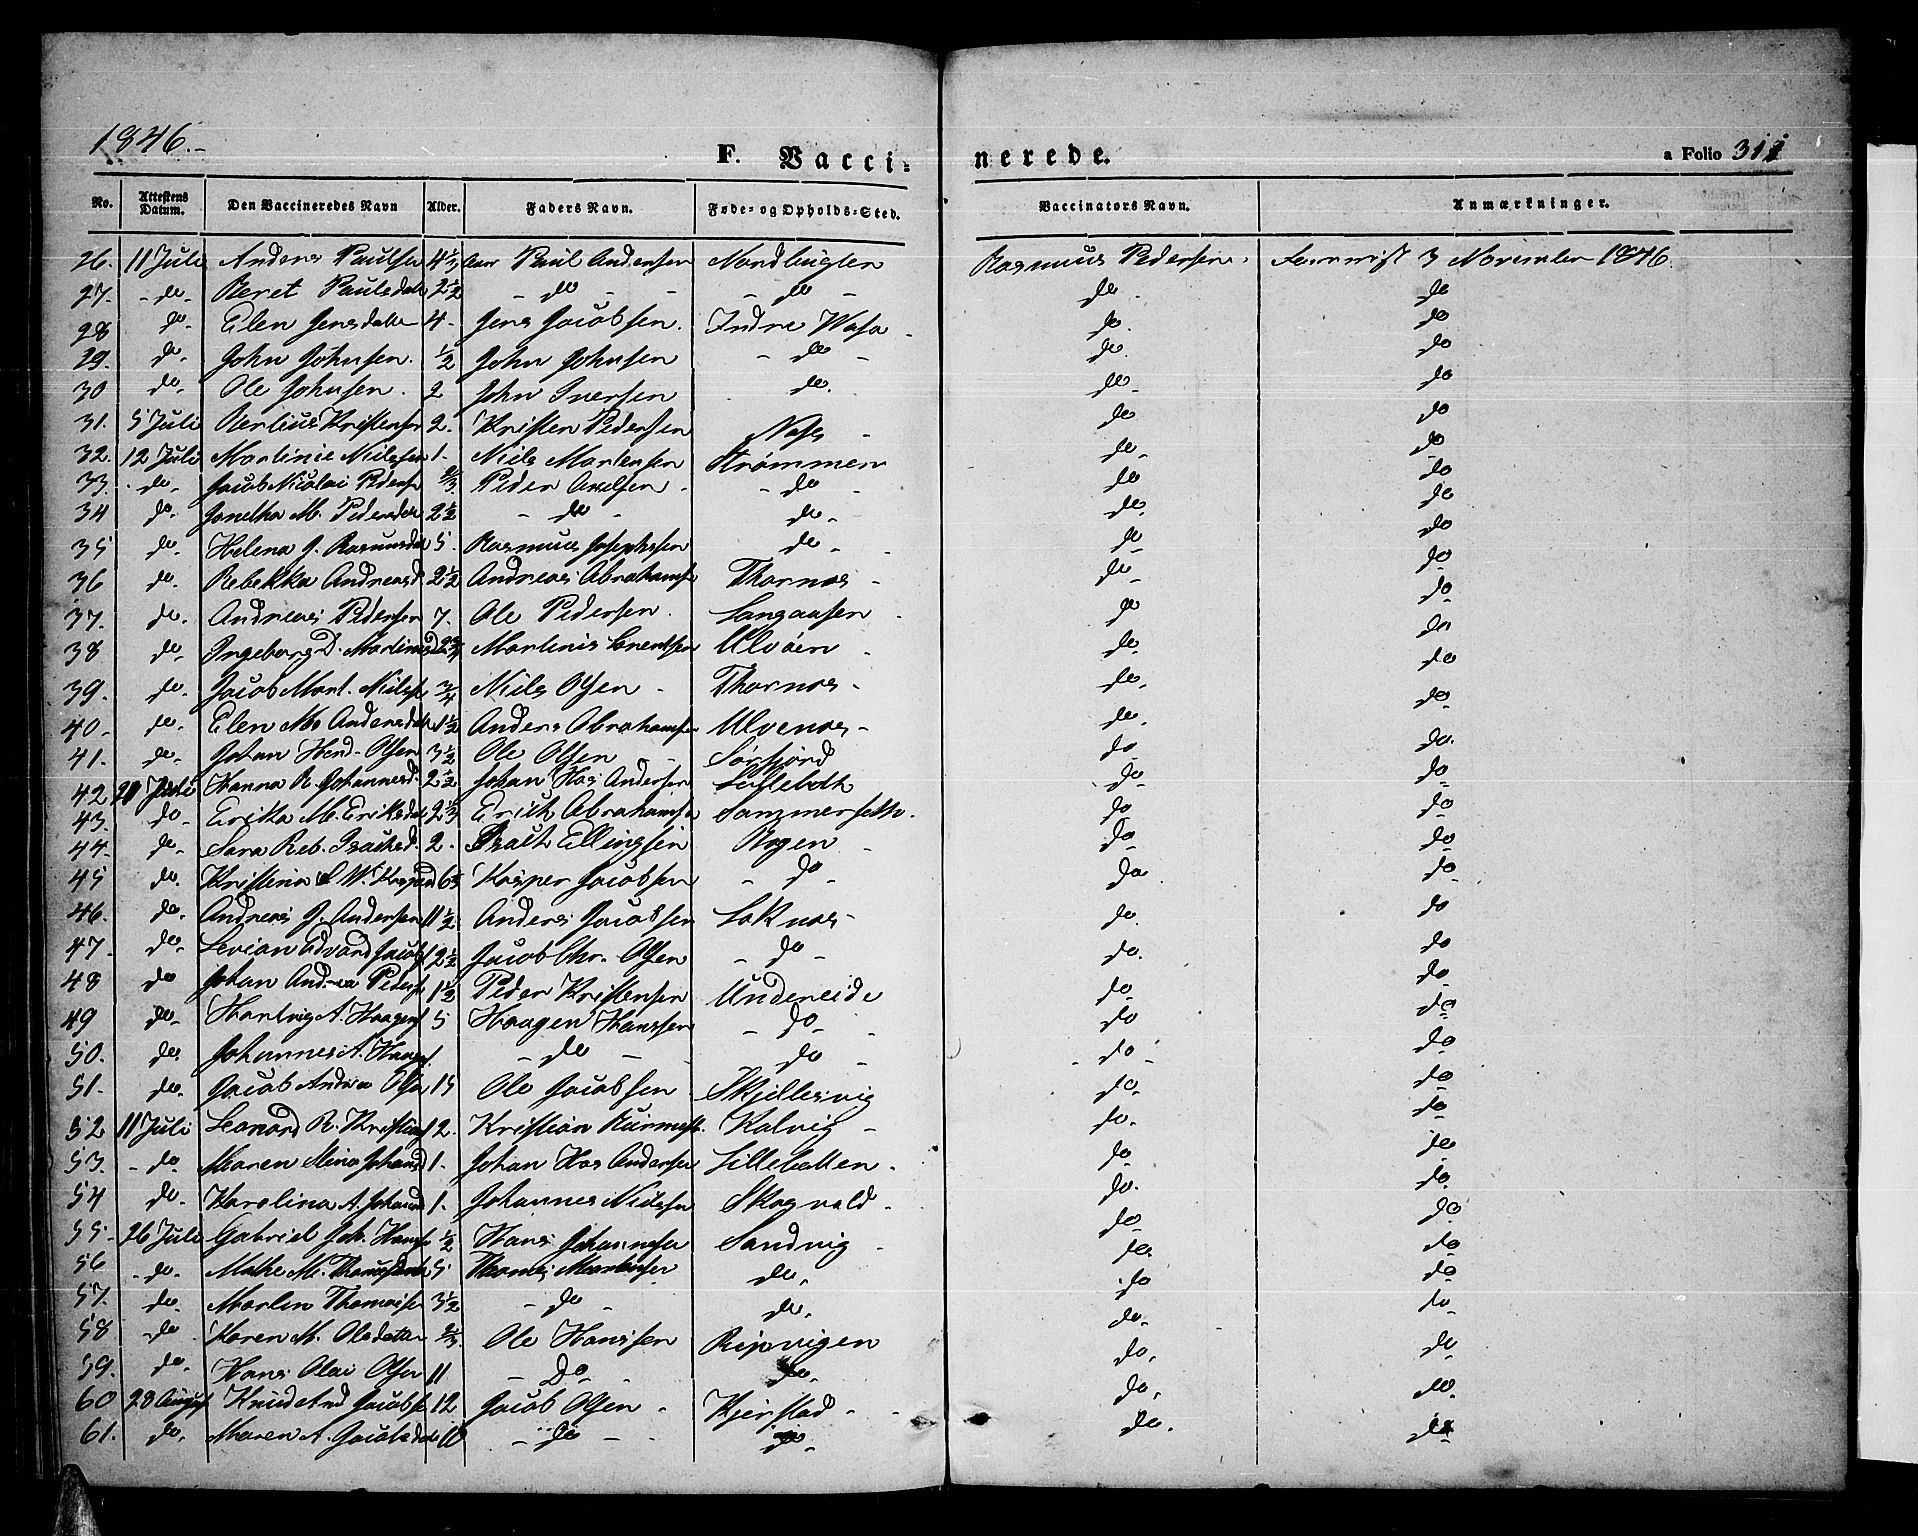 1846.-
F. Vacci- nerede. a Folio 311
No. Attestens Datum. Den Vaccineredes Navn Alder. Faders Navn. Føde- og Opholds-Sted. Vaccinators Navn. Anmærkninger.
26. 11 Juli Anders Paulsen 4 1/3 Aar Paul Andersen Rasmus Pedersen. 3 November 1846.
27. - do - Beret Paulsdatt 2 1/2 - do - - do - do. do
28 do. Elen Jensdatter 4. Jens Jacobsen. Indre Wasa do. do
29. do. John Johnsen. 1/2 John Johnsen - do - do. do
30 do. Ole Johnsen. 2 John Iversen do. do. do
31. 5 Juli Kristensen 2. Kristen Pedersen do do
32. 12 Juli Martinie Nielsen 1. Niels Martensen Strømmen do. do
33. - do - Jacob Nicolai Peders 2/3 Peder Axelsen. - do - do do
34 do. Jonetha M. Pedersdatt 2 1/2 - do - do. do. do
35 do. Helena J. Rasmusdat 5. Rasmus Josephssen do. do do
36 do. Rebekka Andreasd 2 1/2 Andreas Abrahams Thornæs - do. do
37. do. Andreas Pedersen 7. Ole Pedersen. Langaasen do do
38 do. Ingeborg D. Martinusd 2 3/4 Martinis Lorentsen Ulvöen do. do
39. do. Jacob Mart. Nielss 3/4 Niels Olsen - Thornæs - do. do
40. do. Elen Ma Andersdatt 1 1/2 Anders Abrahams Ulvenæs - do. do
41. do. Johan Hend. Olsen 3 1/2 Ole Olsen Sørfjord do do.
42 Juli Hanna R. Johannesd. 2 1/2 Johan Has Andersen do do
43. do. Erika M. Eriksdat 2 1/3 Erich Abrahamsen Sammerseth. do do
44. do. Sara Reb. Isachsd. 2. Isach Ellingsen do do
45 do. Kristina W. Kaspard Kasper Jacobsen - do - do do
46. do. Andreas J. Andersen 11 1/2 Anders Jacobsen Laknæs - do. do
47. do. Levian Edvard Jacobs 12 1/2 Jacob Chr. Olsen - do - do. do
48 do Johan Andrea Peders 1 1/2 Peder Kristensen Undereide do do
49 do. Hartvig A. Haagens 5 Haagen Hanssen - do - do do
50. do. Johannes A. Haag 1 - do - do - - do - do
51. do. Jacob Andrea Olsen 15 Ole Jacobsen Skjellesvig do. do
52 11 Juli Leonard R. Kristians 12. Kristian Kalvig - do. do
53. - do Maren Mina Johansd 1. Johan Has Andersen Lillebotten - do do
54 do. Karolina A. Johannd 1. Johannes Nielssen Skogvold - do. do
55 - 26 Juli Gabriel Joh. Hanss 1/2 Hans Johannesen Sandvig do do
56 - do. M. Thomasdatt 5 Thomas Martinsen do. do. do
57. do. Martin Thomassen 3 1/2 - do - do. do do
58 do Karen M. Olsdatter 2/3 Ole Hanssen Ripvigen do. do
59. do. Hans Olai Olsen 11 - Do - do. do. do
60 28 August Knud And Jacobse 12 Jacob Olsen - Kjerstad - do. do.
61. do. Maren A. Jacobsdatt 10 - do - do do. do